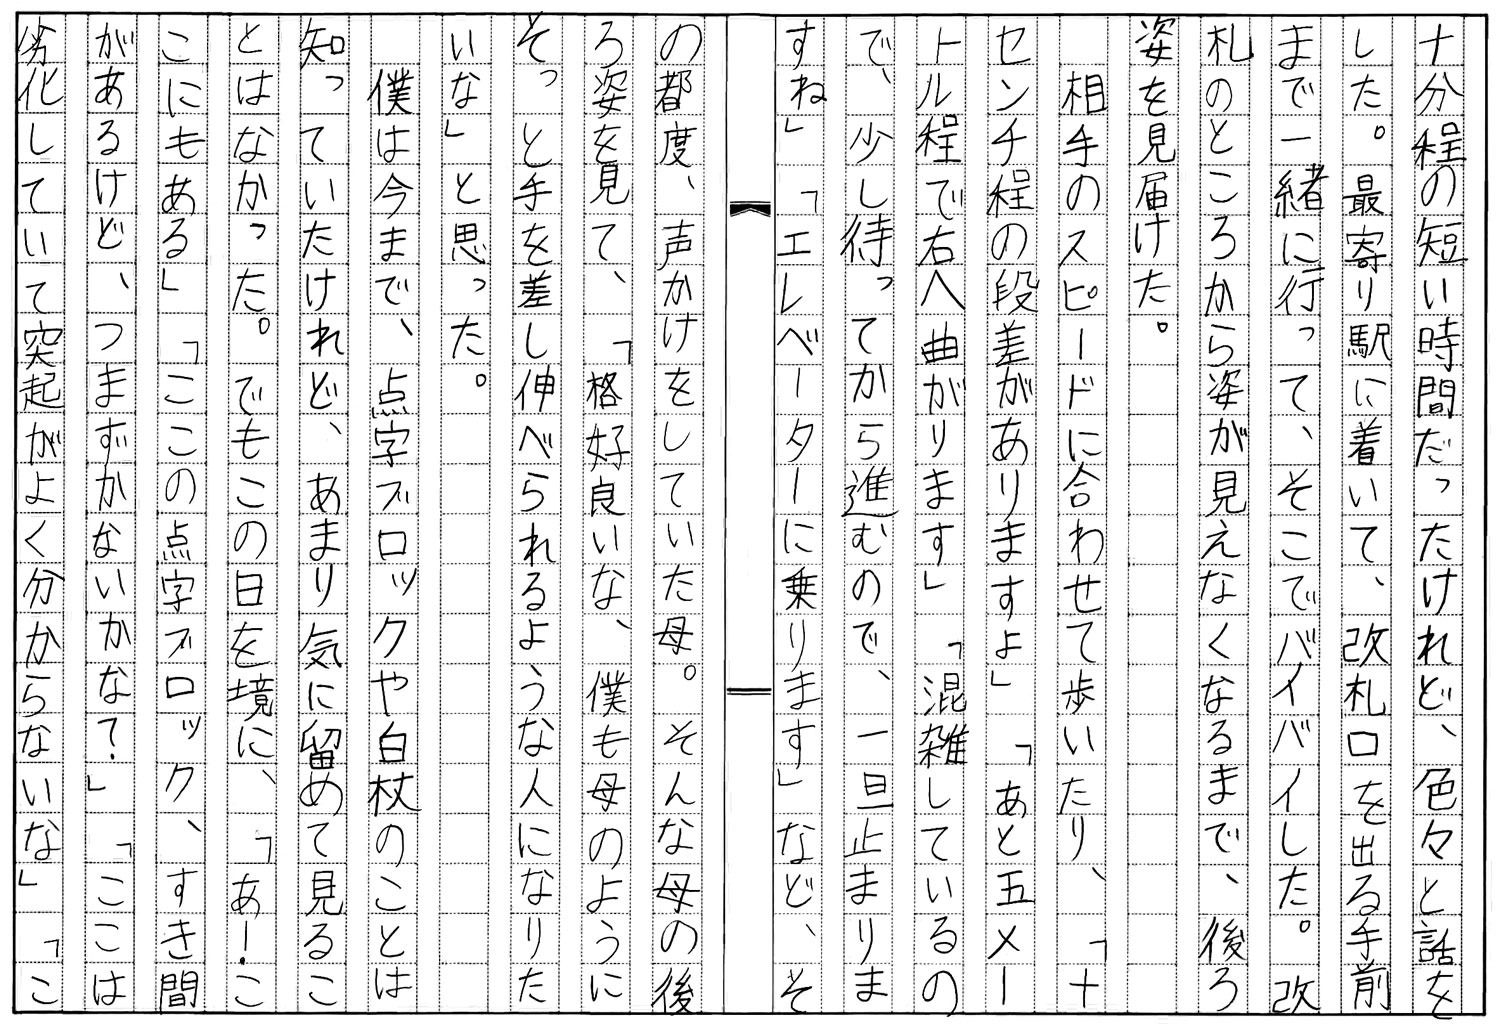 十分程の短い時間だったけれど、色々と話を
した。最寄り駅に着いて、改札口を出る手前
まで一緒に行って、そこでバイバイした。改
札のところから姿が見えなくなるまで、後ろ
姿を見届けた。
相手のスピードに合わせて歩いたり、「十
センチ程の段差がありますよ」「あと五メー
トル程で右へ曲がります」「混雑しているの
で、少し待ってから進むので、一旦止まりま
すね」「エレベーターに乗ります」など、そ
の都度、声かけをしていた母。そんな母の後
ろ姿を見て、「格好良いな、僕も母のように
そっと手を差し伸べられるような人になりた
いな」と思った。
僕は今まで、点字ブロックや白杖のことは
知っていたけれど、あまり気に留めて見るこ
とはなかった。でもこの日を境に、「あ!こ
こにもある」「ここの点字ブロック、すき間
があるけど、つまずかないかな?」「ここは
劣化していて突起がよく分からないな」「こ